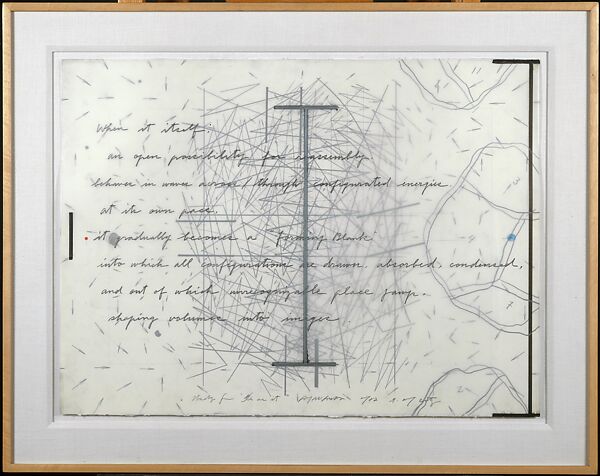 When it itself:
an open possibility for reassembly.
behaves in waves across / through configurated energies
at its own pace.
it gradually becomes a 'forming Blank'
into which all configurations are drawn, absorbed, condensed,
and out of which unrecognizable place jumps.
shaping volumes into images
11
3
7
2